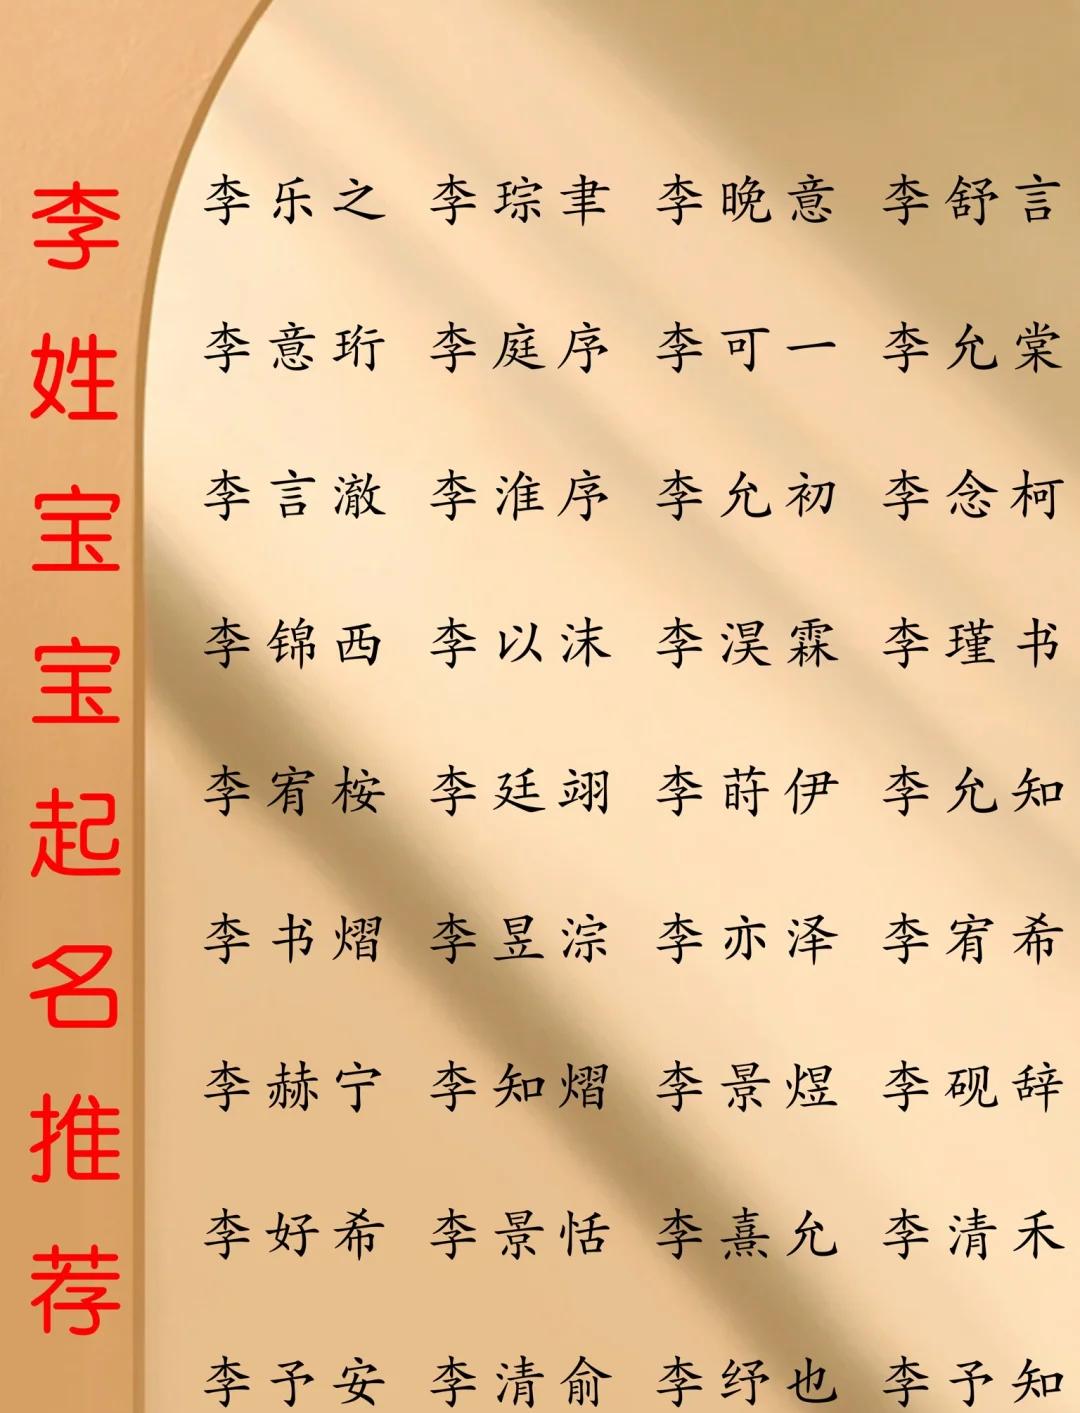 李姓宝宝起名推荐
李乐之 李琮聿 李晚意 李舒言
李意珩 李庭序 李可一 李允棠
李言澈 李淮序 李允初 李念柯
李锦西 李以沫 李淏霖 李瑾书
李宥桉 李廷翊 李莳伊 李允知
李书熠 李昱淙 李亦泽 李宥希
李赫宁 李知熠 李景煜 李砚辞
李好希 李景恬 李熹允 李清禾
李予安 李清俞 李纾也 李予知